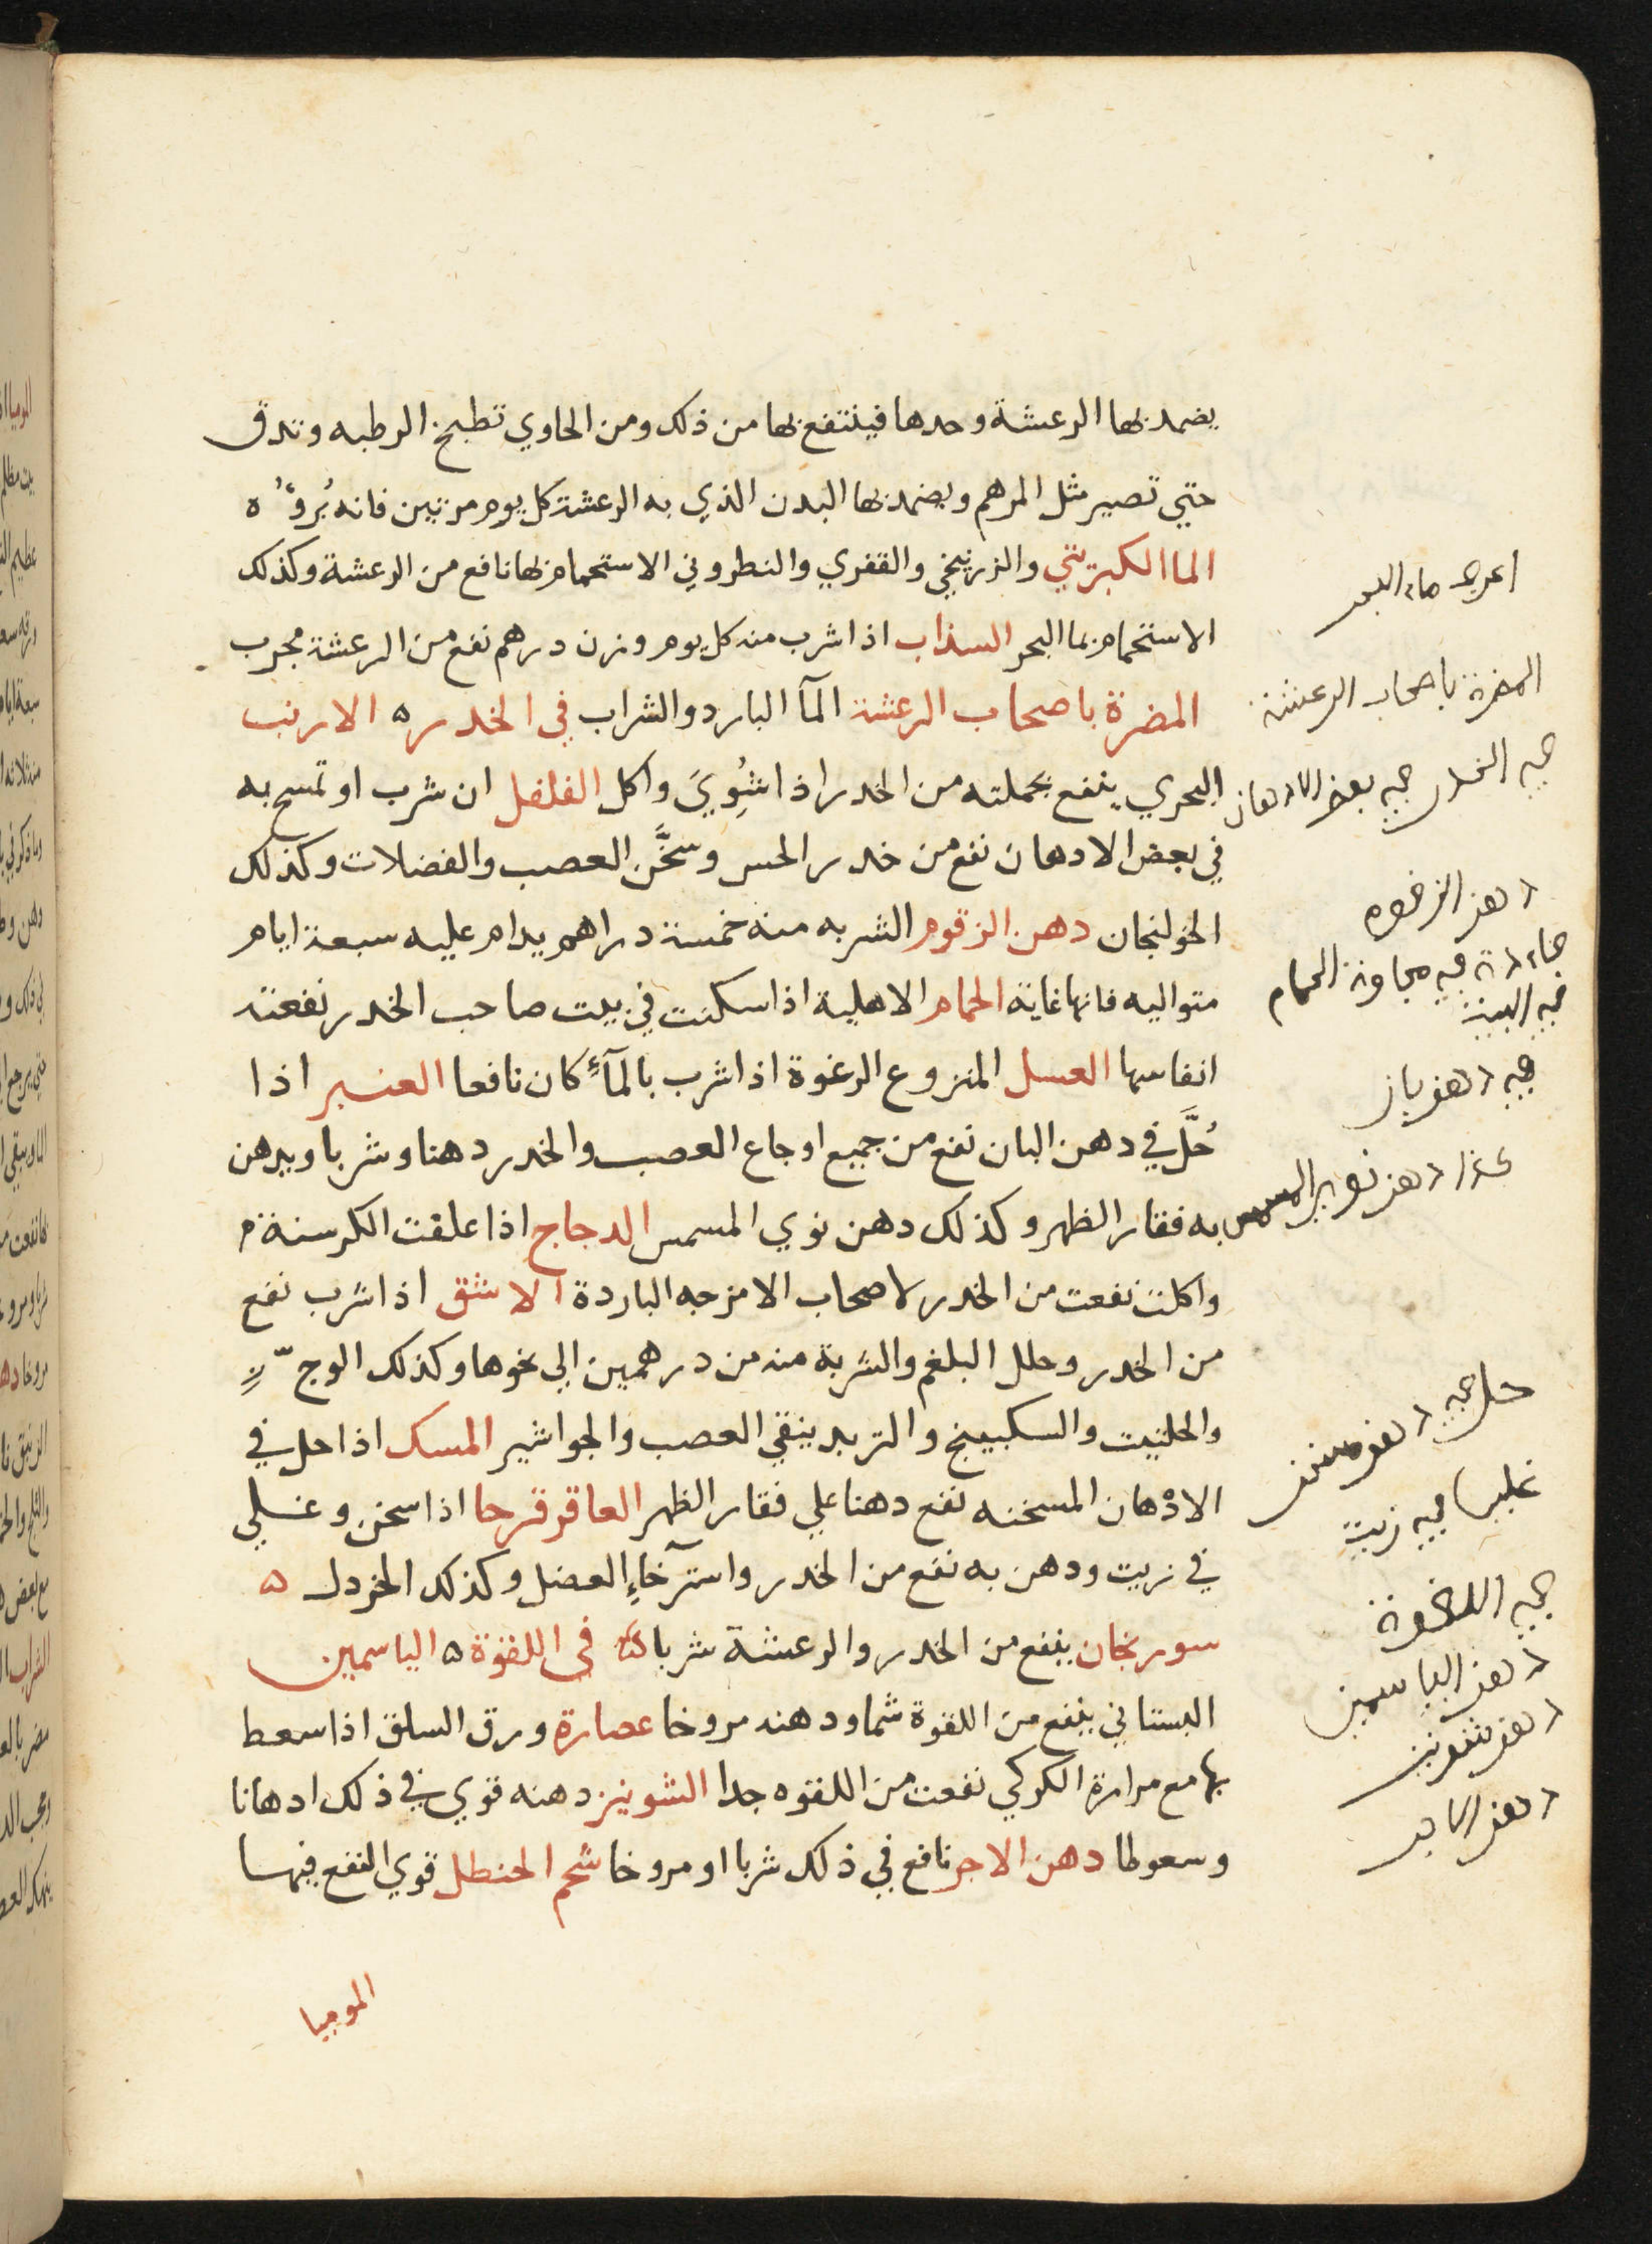 يضمد بها الرعشة وحدها فينتفع بها من ذلك ومن الحاوي تطبخ الرطبه وتدق
حتي تصير مثل المرهم ويضمد بها البدن الذي به الرعشة كل يوم مرتين فانه يُروّه
الما الكبريتي والزرنيخي والقفري والنطروني الاستحمام بها نافع من الرعشة وكذلك
الاستحمام بما البحر السذاب اذا شرب منه كل يوم وزن درهم نفع من الرعشة مجرب
المضرة باصحاب الرعشة المآ البارد والشراب في الخدر ه الارنب
البحري ينفع بحملته من الخدر اذا شُوِيَ واكل الفلفل ان شرب او تمسح به
في بعض الادهان نفع من خدر الحس وسخَّن العصب والفضلات وكذلك
الخولنجان دهن الزقوم الشربه منه خمسة دراهم يدام عليه سبعة ايام
متواليه فانها غاية الحمام الاهلية اذا سكنت في بيت صاحب الخدر نفعته
انفاسها العسل المنزوع الرغوة اذا شرب بالمآءِ كان نافعا العنبر اذا
حُلَّ في دهن البان نفع من جميع اوجاع العصب والخدر دهنا وشربا ويدهن
به فقار الظهر وكذلك دهن نوي المسمس الدجاج اذا علفت الكرسنة م
واكلت نفعت من الخدر لاصحاب الامزجه الباردة الاشق اذا شرب نفع
من الخدر وحلل البلغم والشربة منه من درهمين الي نحوها وكذلك الوج
والحلتيت والسكبينج والتربد ينقي العصب والجواشير المسك اذا حل في
الادْهان المسخنه نفع دهنا علي فقار الظهر العاقر قرحا اذا سخن وغلي
في زيت ودهن به نفع من الخدر واسترخآءِ العضل وكذلك الخردل ه
سورنجان ينفع من الخدر والرعشة شربا في اللقوة ه الياسمين
البستاني ينفع من اللقوة شما ودهنه مروخا عصارة ورق السلق اذا سعط
بها مع مرارة الكركي نفعت من اللقوه جدا الشونيز دهنه قوي في ذلك ادهانا
وسعوطا دهن الاجر نافع في ذلك شربا او مروخا شحم الحنطل قوي النفع فيها
الموميا
ماء البحر
المضرة باصحاب الرعشة
في الخدر في بعض الادهان
دهن الزقوم
في مجاورة الحمام
في البيت
في دهن بان
دهن نوي المسمس
حل في دهن مسخن
في زيت
في اللقوة
دهن الياسمين
دهن شونيز
دهن الاجر